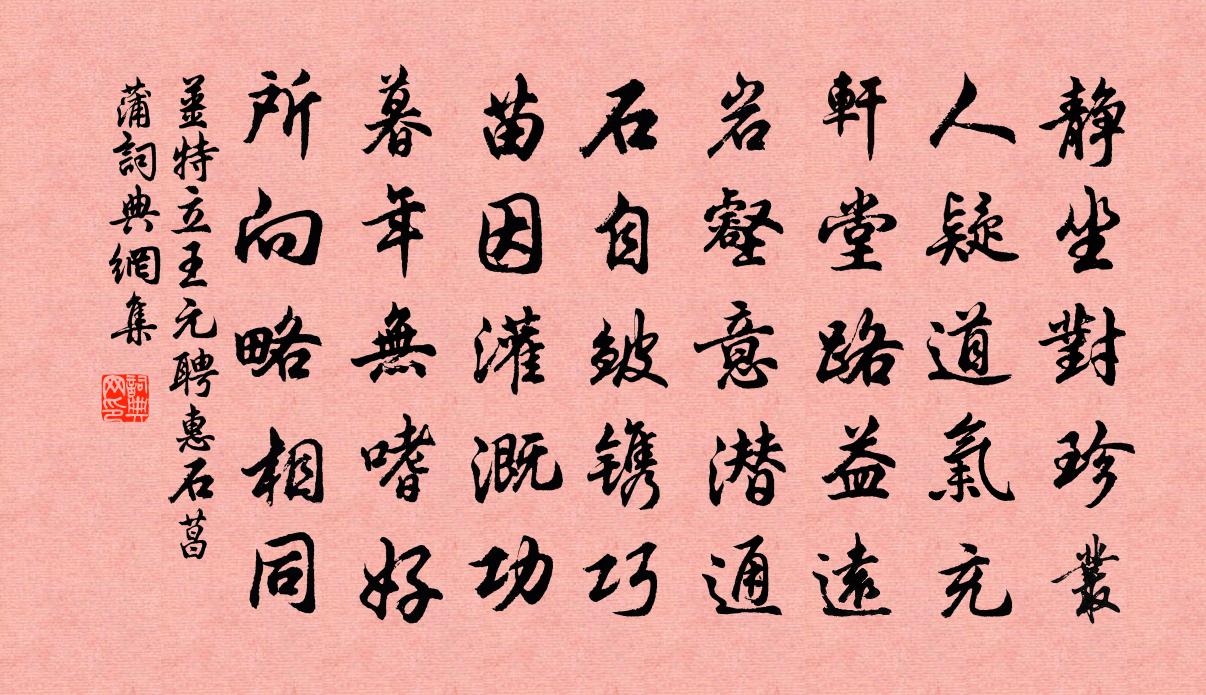 静坐對珍叢
人疑道氣充
軒堂路益遠
岩壑意潜通
石自皴鐫巧
苗因灌溉功
暮年無嗜好
所向略相同
薑特立王元聘惠石菖
蒲詞典網集
詞典网印